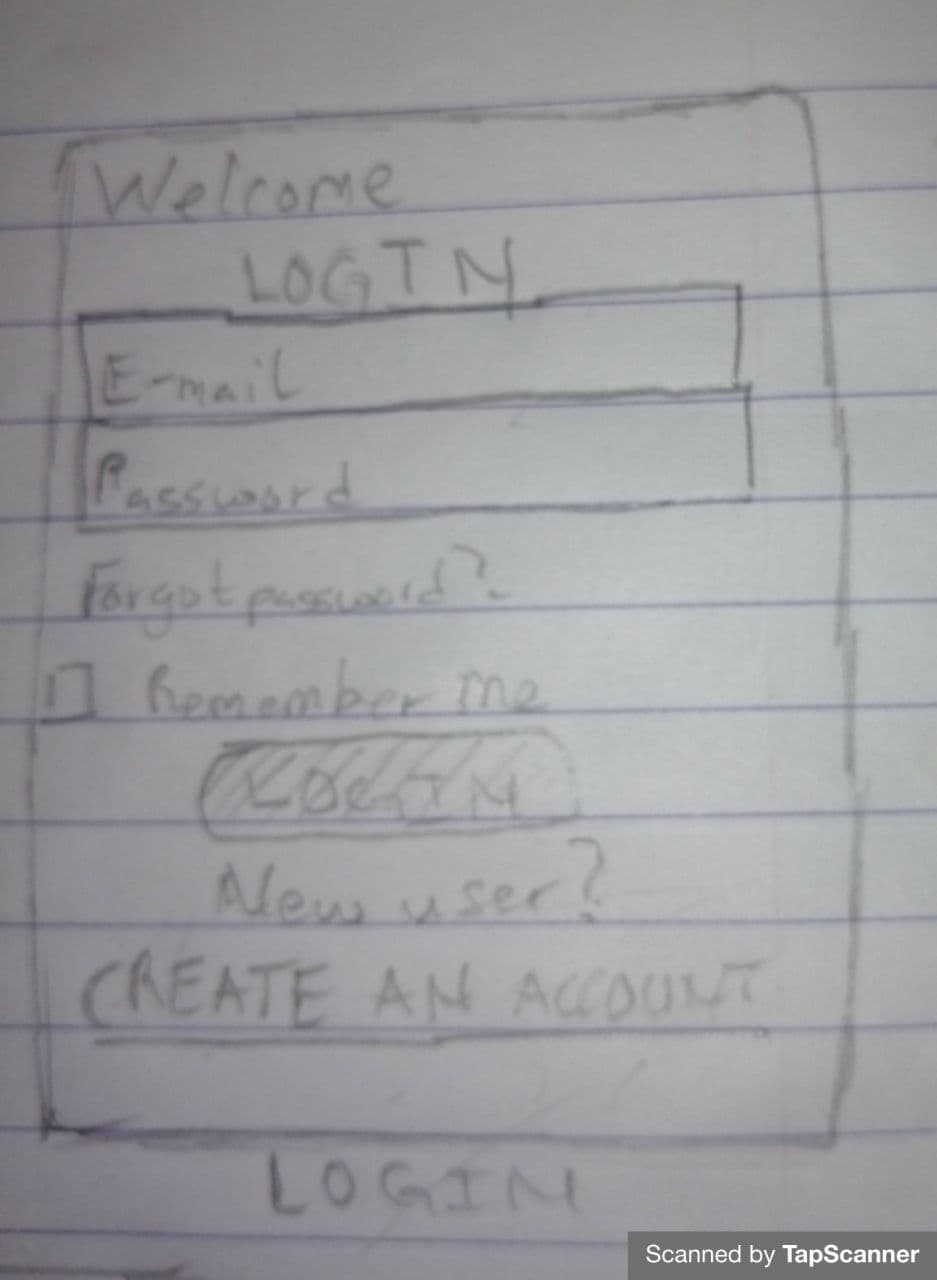 Welcome
LOGIN
E-mail
Password
Forgot password?
Remember me
LOGIN
New user?
CREATE AN ACCOUNT
LOGIN
Scanned by TapScanner